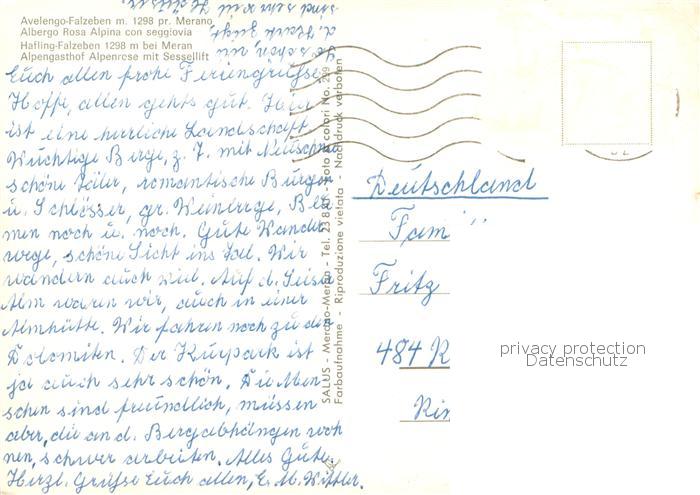 Avelengo-Falzeben m. 1298 pr. Merano
Albergo Rosa Alpina con seggiovia
Hafling-Falzeben 1298 m bei Meran
Alpengasthof Alpenrose mit Sessellift
Euch allen frohe Feriengrüße.
Hoffe, allen gehts gut. Hier
ist eine herrliche Landschaft.
Wuchtige Berge, z. T. mit Neuschnee
schöne Täler, romantische Burgen
u. Schlösser, gr. Weinberge, Blu-
men noch u. noch. Gute Wander-
wege, schöne Sicht ins Tal. Wir
wandern auch viel. Auf d. Seiser
Alm waren wir, auch in einer
Almhütte. Wir fahren noch zu den
Dolomiten. Der Kurpark ist
ja auch sehr schön. Die Men-
schen sind freundlich, müssen
aber, die an d. Bergabhängen woh-
nen, schwer arbeiten. Alles Gute.
Herzl. Grüße Euch allen, E. M. Wittler.
SALUS - Merano-Meran - Tel. 23 8
Farbaufnahme - Riproduzione vietata - Nachdruck verboten
Deutschland
Fam
Fritz
484 R
Rin
privacy protection
Datenschutz